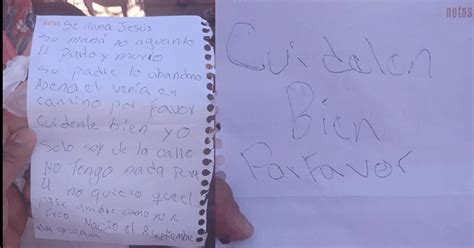 notas
Se llama Jesús
su mamá no aguanto
el parto y murio
Su padre lo abandono
Apena el venía en
camino por favor
Cuidenle bien yo
Solo soy de la calle
No Tengo nada para
el no quiero que el
pase ambre como yo
Nacio el 8 septiembre
notas
Cuidelen
Bien
Porfavor